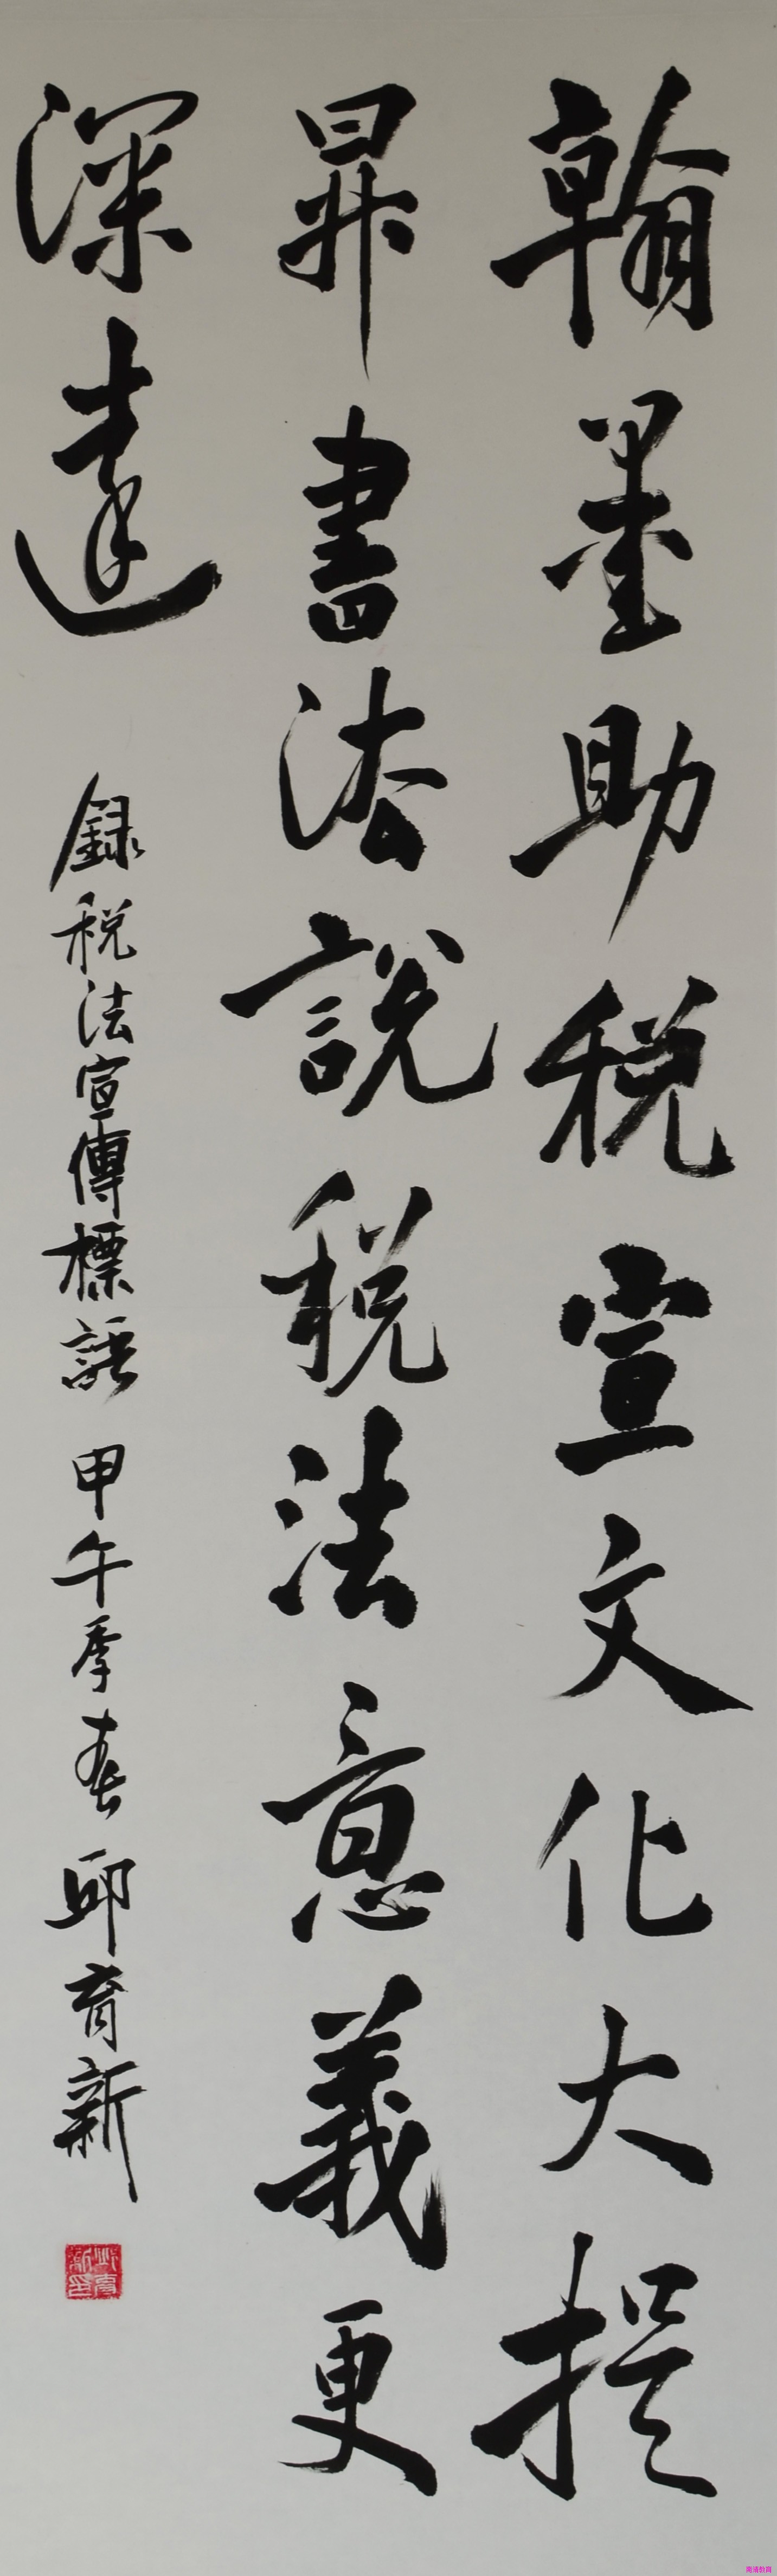 翰墨助税宣文化大提
昇書法說税法意義更
深遠
録税法宣傳標語 甲午季春 邱育新